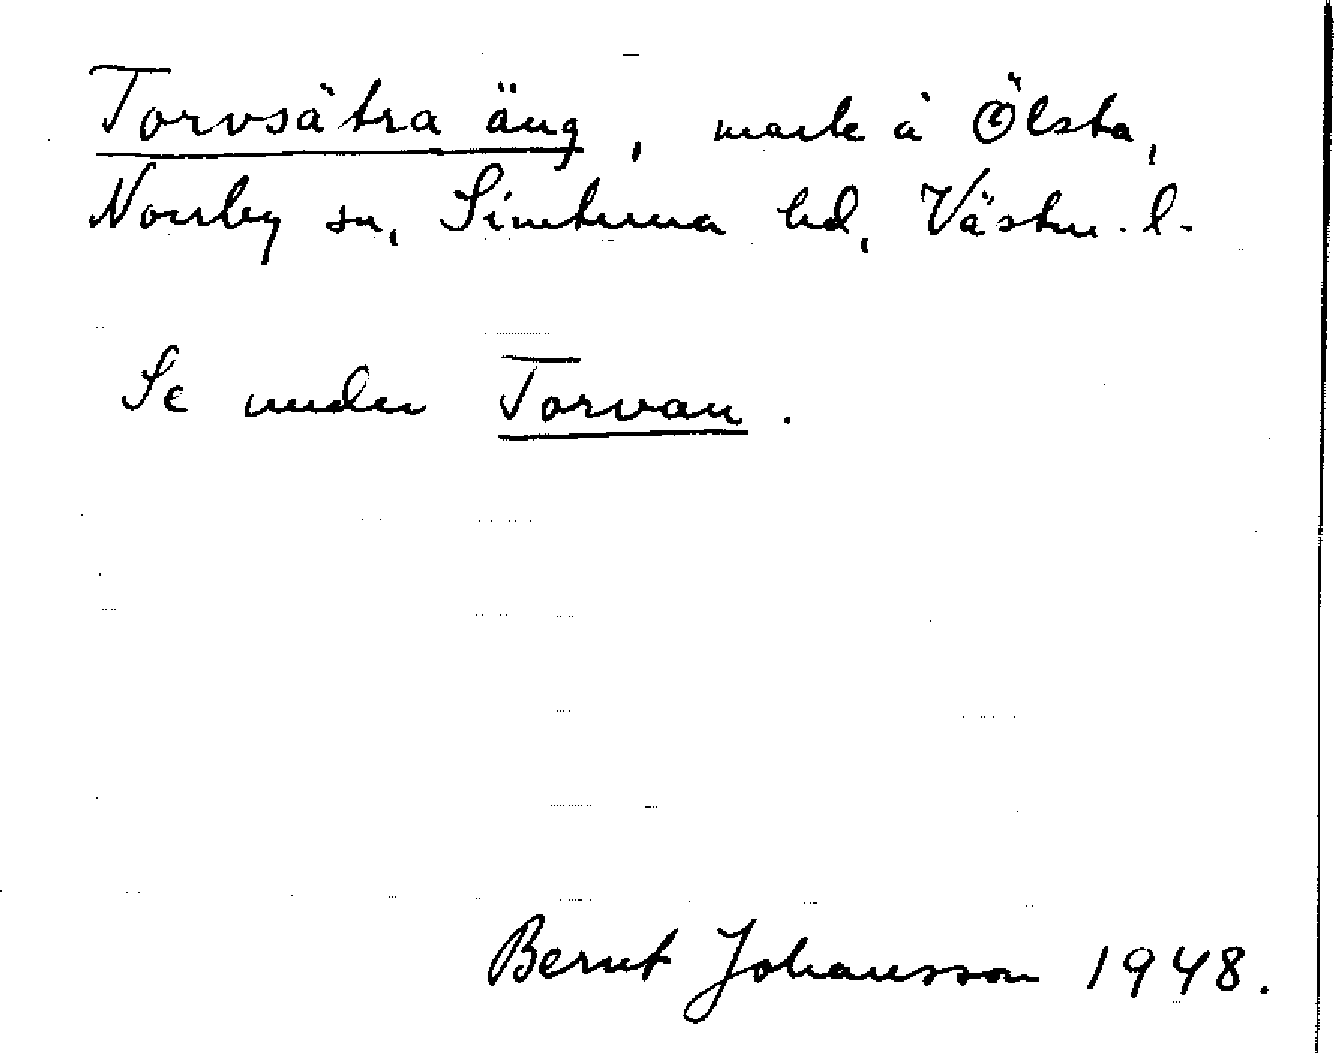 Torvsätra äng, mark å Ölsta,
Nourby sn, Simtuna hd, Västm. l.
Se under Torvan.
Bernt Johansson 1948.